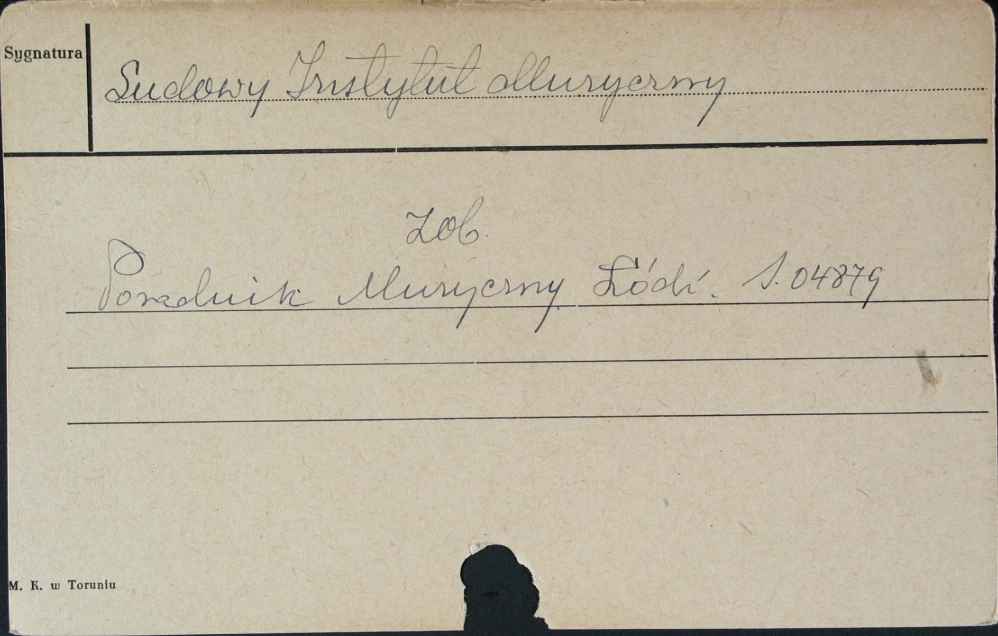 Sygnatura
Ludowy Instytut Muzyczny
zob.
Poradnik Muzyczny Łódź. S. 04879
M. K. w Toruniu